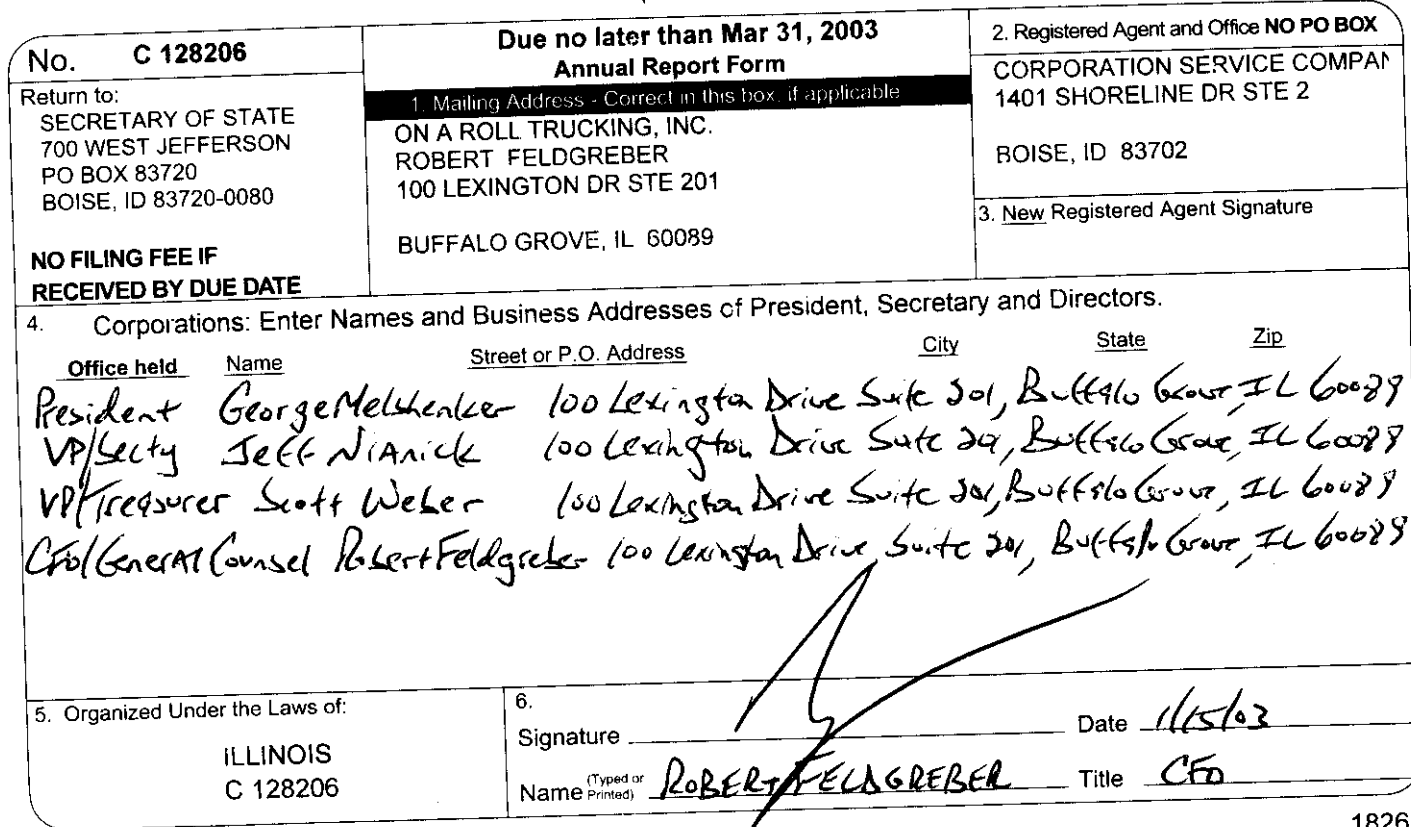 No. C 128206
Return to:
SECRETARY OF STATE
700 WEST JEFFERSON
PO BOX 83720
BOISE, ID 83720-0080
NO FILING FEE IF
RECEIVED BY DUE DATE
Due no later than Mar 31, 2003
Annual Report Form
1. Mailing Address - Correct in this box, if applicable
ON A ROLL TRUCKING, INC.
ROBERT FELDGREBER
100 LEXINGTON DR STE 201
BUFFALO GROVE, IL 60089
2. Registered Agent and Office NO PO BOX
CORPORATION SERVICE COMPAN
1401 SHORELINE DR STE 2
BOISE, ID 83702
3. New Registered Agent Signature
4. Corporations: Enter Names and Business Addresses of President, Secretary and Directors.
Office held Name Street or P.O. Address City State Zip
President George Melshenker 100 Lexington Drive Suite 201, Buffalo Grove, IL 60089
VP/Secty Jeff Nianick 100 Lexington Drive Suite 201, Buffalo Grove, IL 60089
VP/Treasurer Scott Weber 100 Lexington Drive Suite 201, Buffalo Grove, IL 60089
CFO/General Counsel Robert Feldgreber 100 Lexington Drive, Suite 201, Buffalo Grove, IL 60089
5. Organized Under the Laws of:
ILLINOIS
C 128206
6.
Signature Date 1/15/03
Name (Typed or Printed) ROBERT FELDGREBER Title CFO
1826